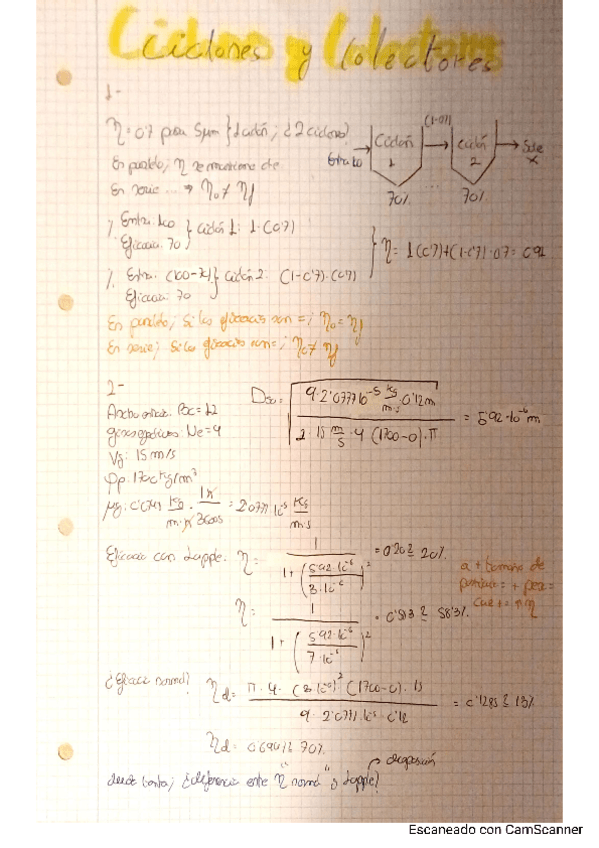 Ciclones y Colectores
1-
η = 0'7 para 5μm } 1 ciclón; ¿2 ciclones?
En paralelo; η se mantiene de
En serie ... → η₀ ≠ ηf
Entra 100
Ciclón 1
70%
(1-0'7)
...
Ciclón 2
70%
Sale x
Entra: 100
Eficacia: 70 } Ciclón 1: 1·(0'7)
Entra: (100-70)
Eficacia: 70 } Ciclón 2: (1-0'7)·(0'7)
} η = 1(0'7)+(1-0'7)·0'7 = 0'91
En paralelo; Si las eficacias son = ; η₀ = ηf
En serie; Si las eficacias son = ; η₀ ≠ ηf
2-
Ancho entrada: Bc = 12
Ne = 4
Vg: 15 m/s
ρp: 1700 kg/m³
μg: kg/m·h · 1h/3600s = 2'0777·10⁻⁵ kg/m·s
D₅₀ = √(9·2'0777·10⁻⁵ kg/m·s · 0'12m / 2·15 m/s·4 (1700-0)·π) = 5'92·10⁻⁶ m
Eficacia con Lapple: η = 1 / (1 + (5'92·10⁻⁶ / 3·10⁻⁶)²) = 0'20 ≈ 20%
η = 1 / (1 + (5'92·10⁻⁶ / 7·10⁻⁶)²) = 0'583 ≈ 58'3%
a + tamaño de partícula = + pesa = cae + = + η
¿Eficacia normal? ηd = π·4·(3·10⁻⁶)²(1700-0)·15 / 9·2'0777·10⁻⁵·0'12 = 0'1285 ≈ 13%
ηd = 70%
¿diferencia entre "η normal" y Lapple?
Escaneado con CamScanner